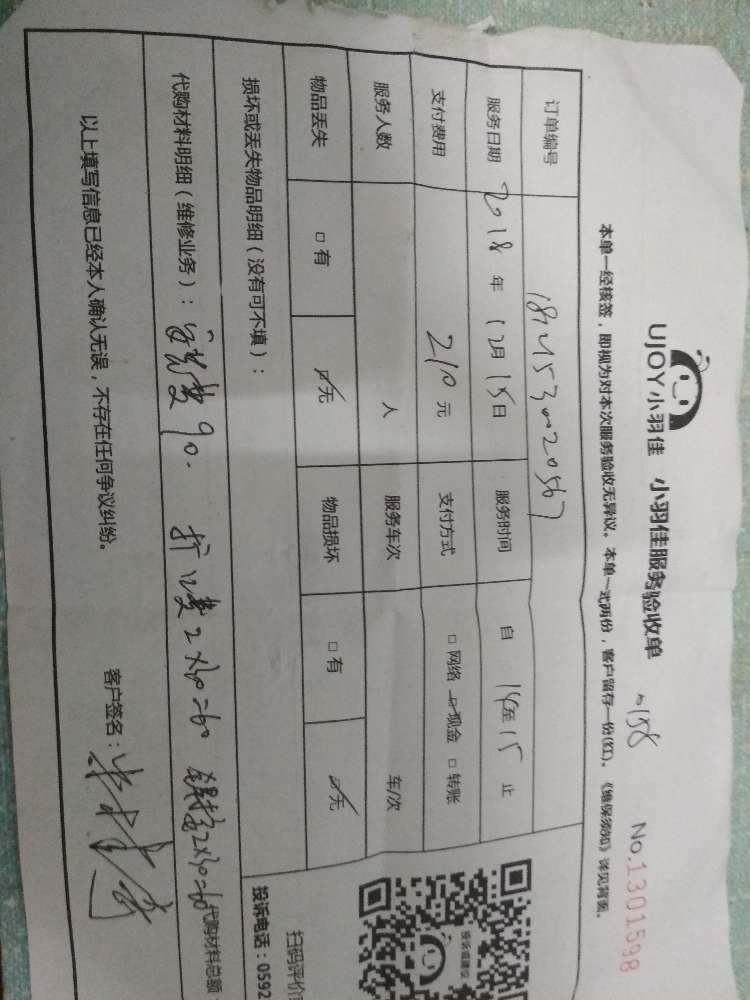 UJOY小羽佳 小羽佳服务验收单
No.1301598
本单一经核签，即视为对本次服务验收无异议。本单一式两份，客户留存一份(红)。《维保须知》详见背面。
订单编号
服务日期 2018年12月15日 服务时间 自 14至15止
支付费用 210元 支付方式 □网络 ☑现金 □转账
服务人数 人 服务车次 车/次
物品丢失 □有 ☑无 物品损坏 □有 ☑无
损坏或丢失物品明细（没有可不填）：
代购材料明细（维修业务）： 90. 2×30=60 2×30=60 代购材料总额
以上填写信息已经本人确认无误，不存在任何争议纠纷。
客户签名：
投诉或建议
扫码评价
投诉电话：0592